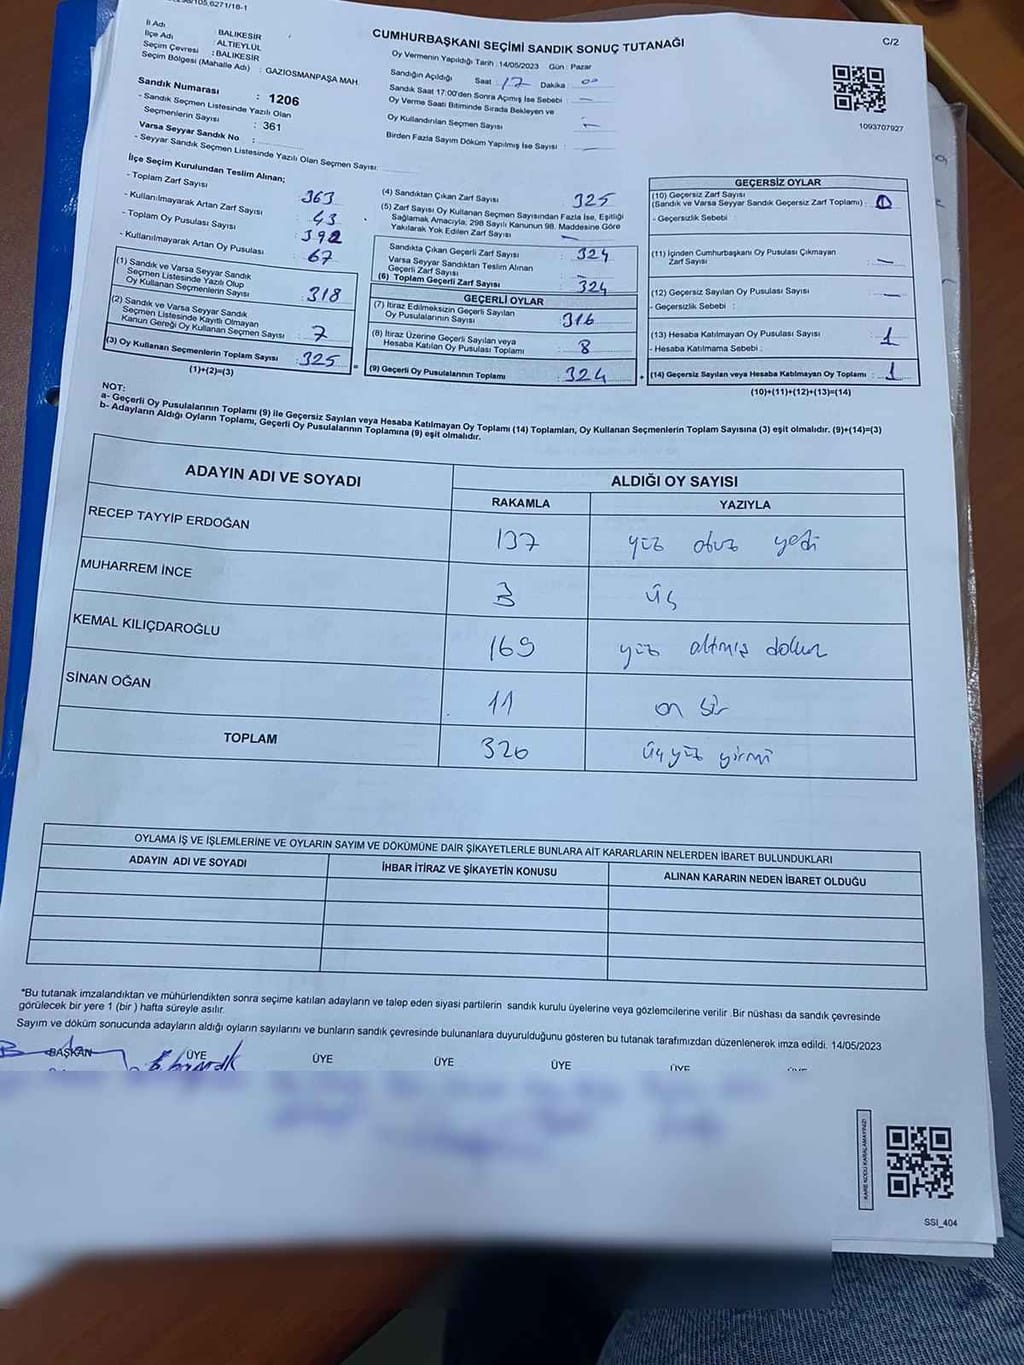 CUMHURBAŞKANI SEÇİMİ SANDIK SONUÇ TUTANAĞI
C/2
İl Adı : BALIKESİR
İlçe Adı : ALTIEYLÜL
Seçim Çevresi : BALIKESİR
Seçim Bölgesi (Mahalle Adı) : GAZİOSMANPAŞA MAH.
Sandık Numarası : 1206
- Sandık Seçmen Listesinde Yazılı Olan
Seçmenlerin Sayısı : 361
Varsa Seyyar Sandık No :
- Seyyar Sandık Seçmen Listesinde Yazılı Olan Seçmen Sayısı:
Oy Vermenin Yapıldığı Tarih : 14/05/2023 Gün : Pazar
Sandığın Açıldığı Saat : 17 Dakika : 00
Sandık Saat 17:00'den Sonra Açımış İse Sebebi : —
Oy Verme Saati Bitiminde Sırada Bekleyen ve
Oy Kullandırılan Seçmen Sayısı : —
Birden Fazla Sayım Döküm Yapılmış İse Sayısı : —
1093707927
İlçe Seçim Kurulundan Teslim Alınan;
- Toplam Zarf Sayısı : 363
- Kullanılmayarak Artan Zarf Sayısı : 43
- Toplam Oy Pusulası Sayısı : 392
- Kullanılmayarak Artan Oy Pusulası : 67
(1) Sandık ve Varsa Seyyar Sandık
Seçmen Listesinde Yazılı Olup
Oy Kullanan Seçmenlerin Sayısı : 318
(2) Sandık ve Varsa Seyyar Sandık
Seçmen Listesinde Kayıtlı Olmayan
Kanun Gereği Oy Kullanan Seçmen Sayısı : 7
(3) Oy Kullanan Seçmenlerin Toplam Sayısı : 325
(1)+(2)=(3)
(4) Sandıktan Çıkan Zarf Sayısı : 325
(5) Zarf Sayısı Oy Kullanan Seçmen Sayısından Fazla İse, Eşitliği
Sağlamak Amacıyla; 298 Sayılı Kanunun 98. Maddesine Göre
Yakılarak Yok Edilen Zarf Sayısı : —
Sandıkta Çıkan Geçerli Zarf Sayısı : 324
Varsa Seyyar Sandıktan Teslim Alınan
Geçerli Zarf Sayısı :
(6) Toplam Geçerli Zarf Sayısı : 324
GEÇERLİ OYLAR
(7) İtiraz Edilmeksizin Geçerli Sayılan
Oy Pusulalarının Sayısı : 316
(8) İtiraz Üzerine Geçerli Sayılan veya
Hesaba Katılan Oy Pusulası Toplamı : 8
(9) Geçerli Oy Pusulalarının Toplamı : 324
GEÇERSİZ OYLAR
(10) Geçersiz Zarf Sayısı
(Sandık ve Varsa Seyyar Sandık Geçersiz Zarf Toplamı) : 0
- Geçersizlik Sebebi
(11) İçinden Cumhurbaşkanı Oy Pusulası Çıkmayan
Zarf Sayısı : —
(12) Geçersiz Sayılan Oy Pusulası Sayısı : —
- Geçersizlik Sebebi :
(13) Hesaba Katılmayan Oy Pusulası Sayısı : 1
- Hesaba Katılmama Sebebi :
(14) Geçersiz Sayılan veya Hesaba Katılmayan Oy Toplamı : 1
(10)+(11)+(12)+(13)=(14)
NOT:
a- Geçerli Oy Pusulalarının Toplamı (9) ile Geçersiz Sayılan veya Hesaba Katılmayan Oy Toplamı (14) Toplamları, Oy Kullanan Seçmenlerin Toplam Sayısına (3) eşit olmalıdır. (9)+(14)=(3)
b- Adayların Aldığı Oyların Toplamı, Geçerli Oy Pusulalarının Toplamına (9) eşit olmalıdır.
ADAYIN ADI VE SOYADI
ALDIĞI OY SAYISI
RAKAMLA YAZIYLA
RECEP TAYYİP ERDOĞAN 137 yüz otuz yedi
MUHARREM İNCE 3 üç
KEMAL KILIÇDAROĞLU 169 yüz altmış dokuz
SİNAN OĞAN 11 on bir
TOPLAM 320 üçyüz yirmi
OYLAMA İŞ VE İŞLEMLERİNE VE OYLARIN SAYIM VE DÖKÜMÜNE DAİR ŞİKAYETLERLE BUNLARA AİT KARARLARIN NELERDEN İBARET BULUNDUKLARI
ADAYIN ADI VE SOYADI İHBAR İTİRAZ VE ŞİKAYETİN KONUSU ALINAN KARARIN NEDEN İBARET OLDUĞU
*Bu tutanak imzalandıktan ve mühürlendikten sonra seçime katılan adayların ve talep eden siyasi partilerin sandık kurulu üyelerine veya gözlemcilerine verilir .Bir nüshası da sandık çevresinde
görülecek bir yere 1 (bir ) hafta süreyle asılır.
Sayım ve döküm sonucunda adayların aldığı oyların sayılarını ve bunların sandık çevresinde bulunanlara duyurulduğunu gösteren bu tutanak tarafımızdan düzenlenerek imza edildi. 14/05/2023
BAŞKAN ÜYE ÜYE ÜYE ÜYE ÜYE
KARE KODU KARALAMAYINIZ!
SSI_404